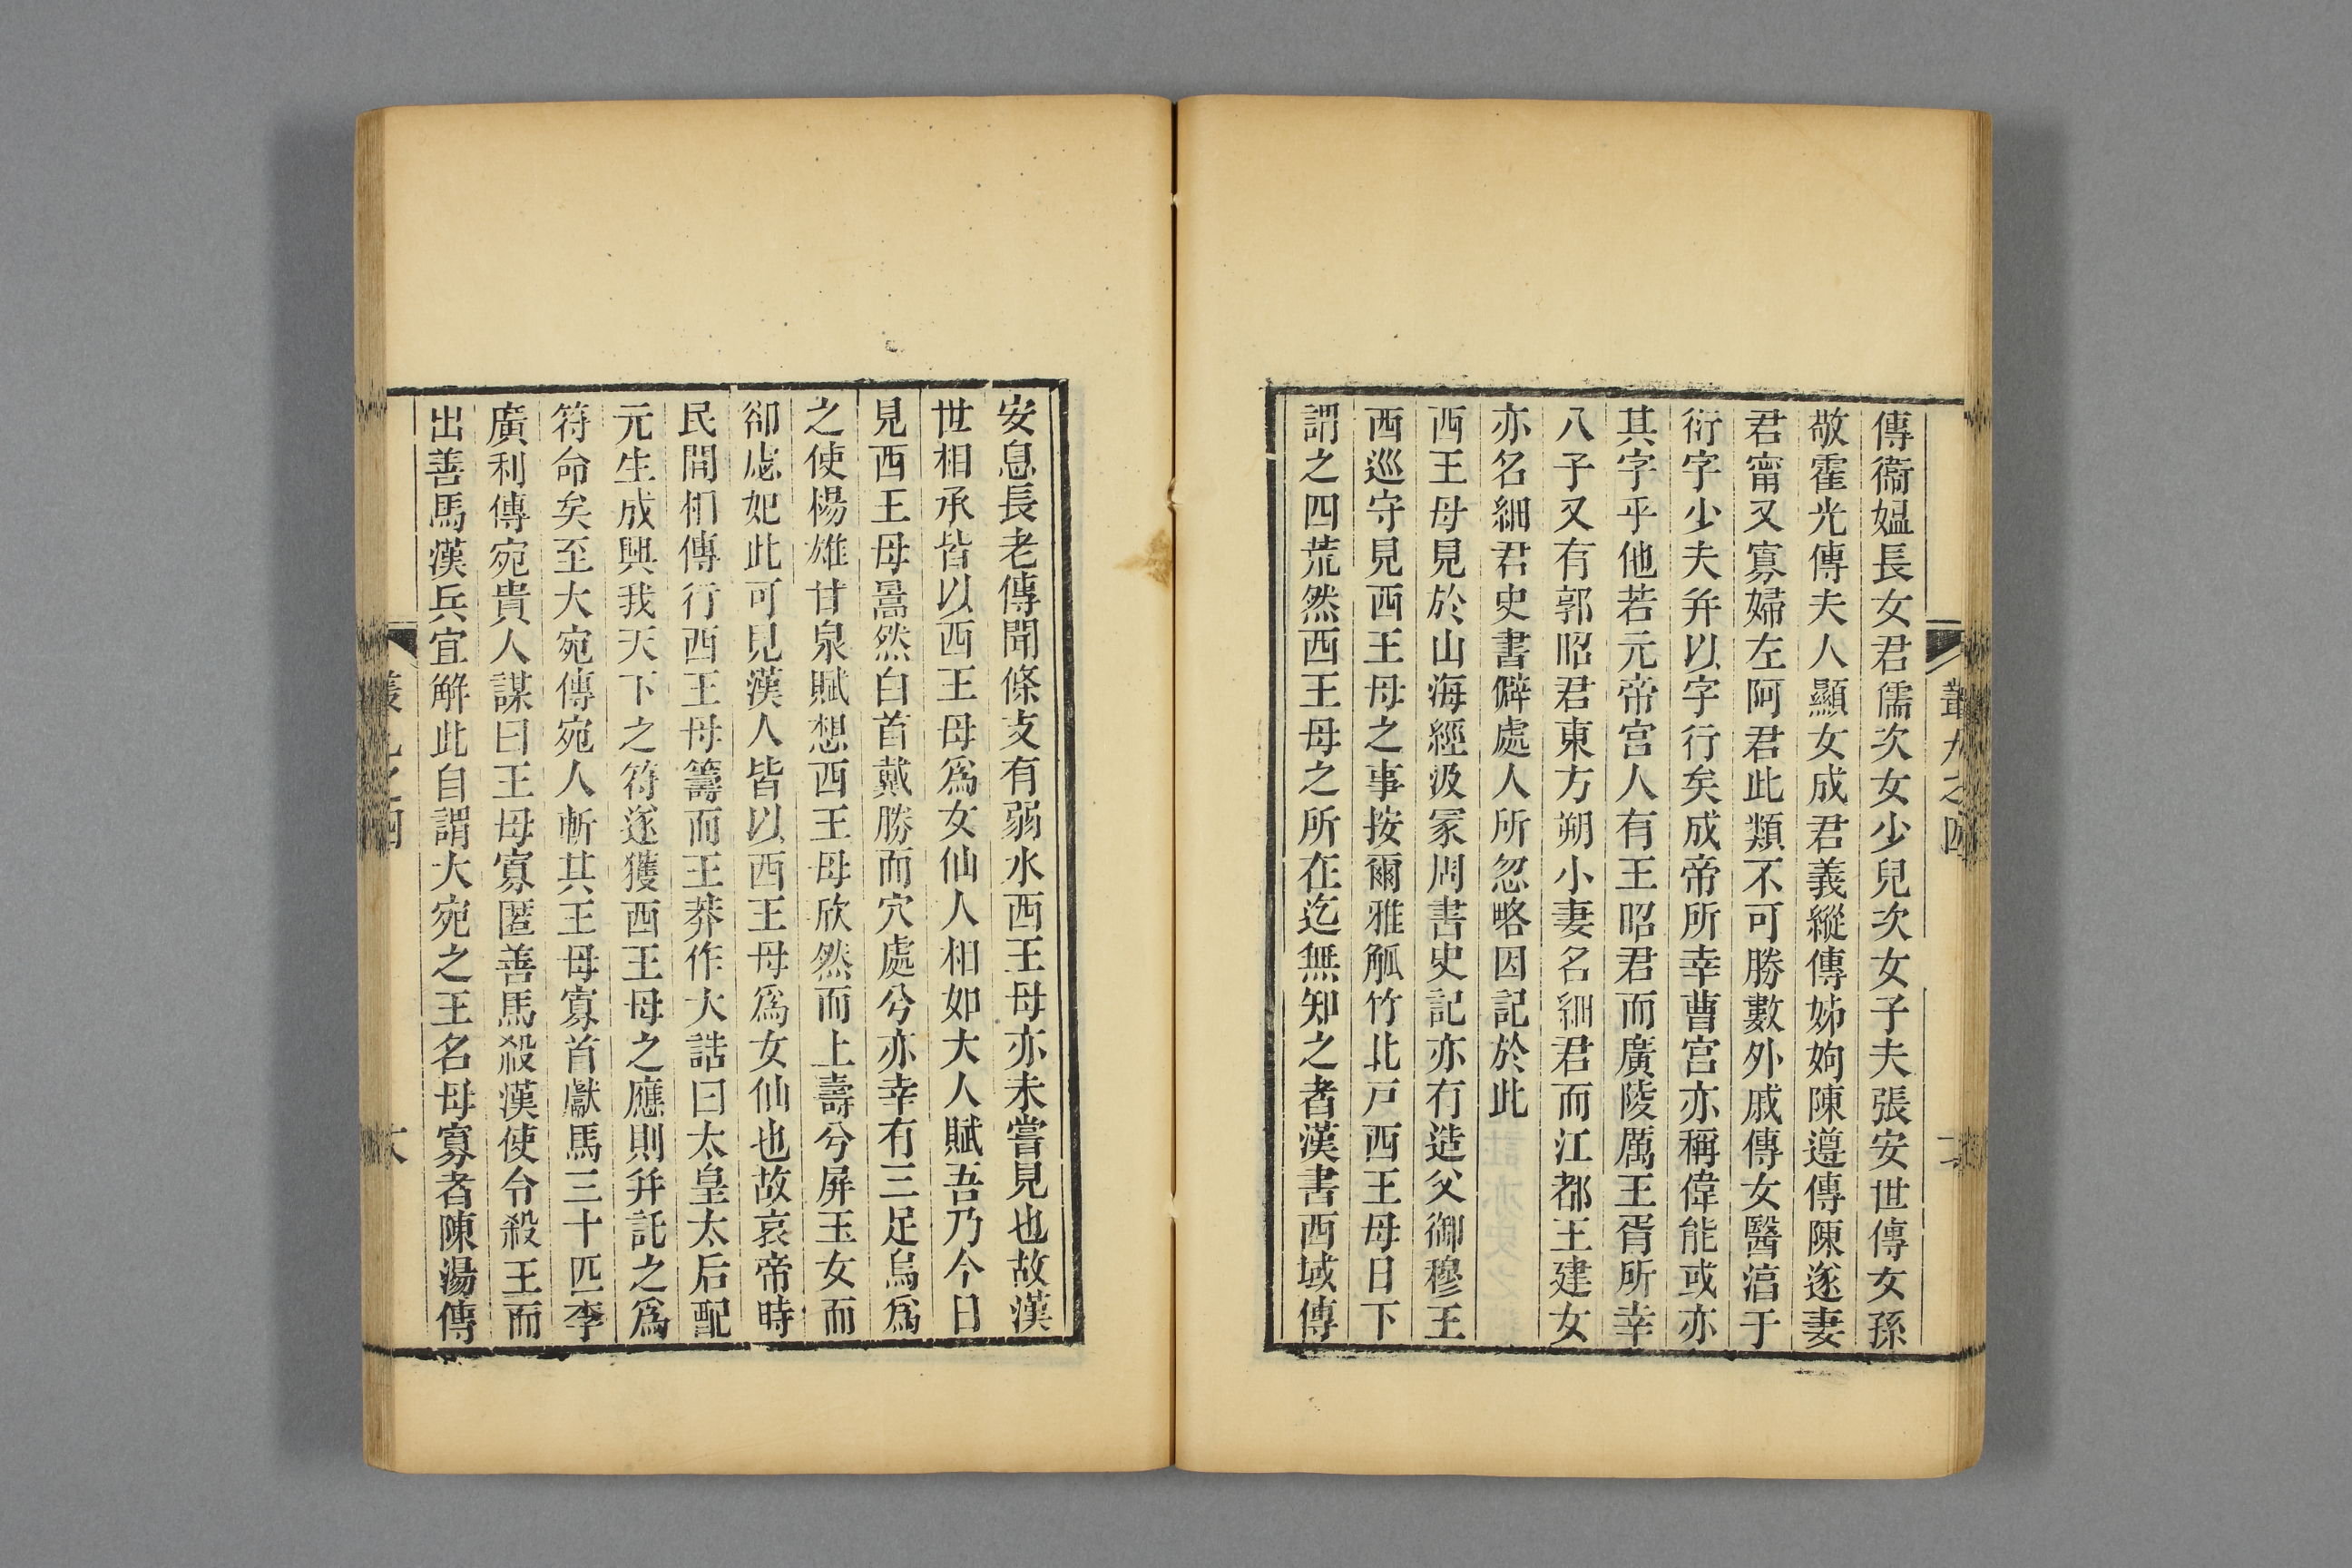 傳衞媪長女君儒次女少兒次女子夫張安世傳女孫
敬霍光傳夫人顯女成君義縱傳姊姁陳遵傳陳遂妻
君甯又寡婦左阿君此類不可勝數外戚傳女醫湻于
衍字少夫并以字行矣成帝所幸曹宫亦稱偉能或亦
其字乎他若元帝宫人有王昭君而廣陵厲王胥所幸
八子又有郭昭君東方朔小妻名細君而江都王建女
亦名細君史書僻處人所忽略因記於此
西王母見於山海經汲冢周書史記亦有造父御穆王
西巡守見西王母之事按爾雅觚竹北戸西王母日下
謂之四荒然西王母之所在迄無知之者漢書西域傳
安息長老傳聞條支有弱水西王母亦未嘗見也故漢
世相承皆以西王母爲女仙人相如大人賦吾乃今日
見西王母暠然白首戴勝而穴處兮亦幸有三足烏爲
之使楊雄甘泉賦想西王母欣然而上壽兮屏玉女而
卻虙妃此可見漢人皆以西王母爲女仙也故哀帝時
民間相傳行西王母籌而王莽作大誥曰太皇太后配
元生成興我天下之符遂獲西王母之應則并託之爲
符命矣至大宛傳宛人斬其王母寡首獻馬三十匹李
廣利傳宛貴人謀曰王母寡匿善馬殺漢使令殺王而
出善馬漢兵宜解此自謂大宛之王名母寡者陳湯傳